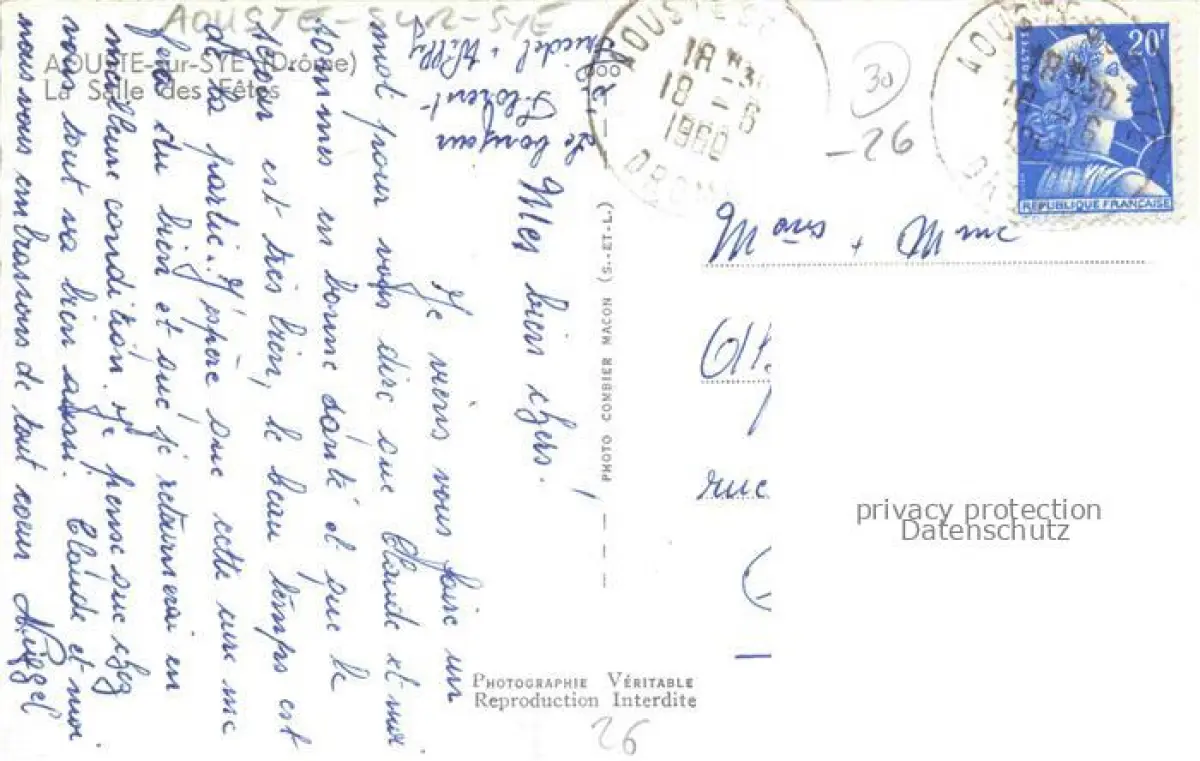 AOUSTE-SUR-SYE
AOUSTE-sur-SYE (Drôme)
La Salle des Fêtes
Mes biens chers!
Je viens vous faire un
mot pour vous dire que Claude et moi
sommes en bonne santé et que le
séjour est très bien, le beau temps est
de la partie. J'espère que cette cure me
fera du bien et que je retournerai en
meilleure condition. Je pense que chez
vous tout va bien aussi. Claude et moi
nous vous embrassons de tout coeur
Le bonjour
Friedel + Willy
PHOTO COMBIER MACON (S.-ET-L.)
PHOTOGRAPHIE VÉRITABLE
Reproduction Interdite
26
AOUSTE
18 H
18 - 6
1960
DROME
30
-26
POSTES
20F
REPUBLIQUE FRANÇAISE
+ Mme
rue
privacy protection
Datenschutz